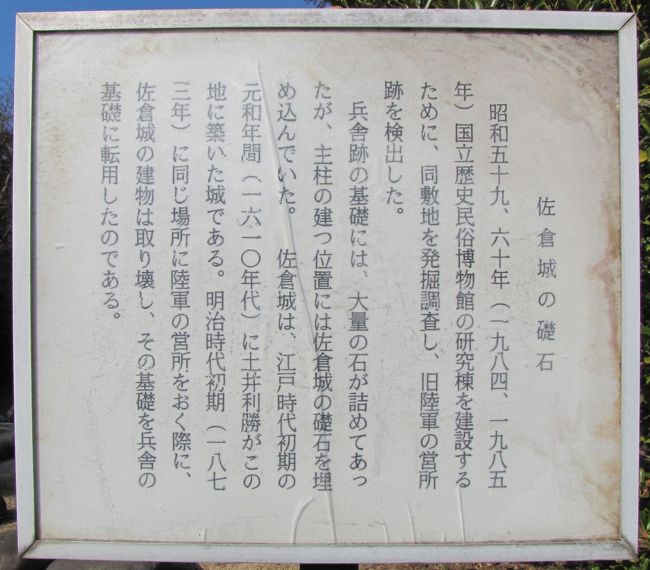 佐倉城の礎石
昭和五十九、六十年（一九八四、一九八五
年）国立歴史民俗博物館の研究棟を建設する
ために、同敷地を発掘調査し、旧陸軍の営所
跡を検出した。
兵舎跡の基礎には、大量の石が詰めてあっ
たが、主柱の建つ位置には佐倉城の礎石を埋
め込んでいた。　佐倉城は、江戸時代初期の
元和年間（一六一〇年代）に土井利勝がこの
地に築いた城である。明治時代初期（一八七
三年）に同じ場所に陸軍の営所をおく際に、
佐倉城の建物は取り壊し、その基礎を兵舎の
基礎に転用したのである。